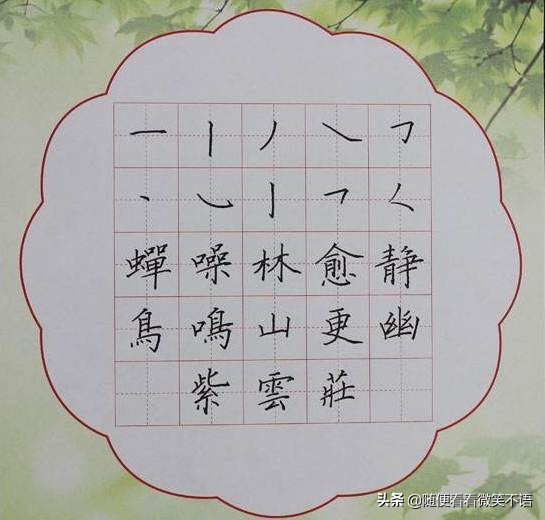 一丨丿㇏㇆
丶㇃亅㇇ㄑ
蟬噪林愈静
鳥鳴山更幽
紫雲莊
头条 @随便看看微笑不语